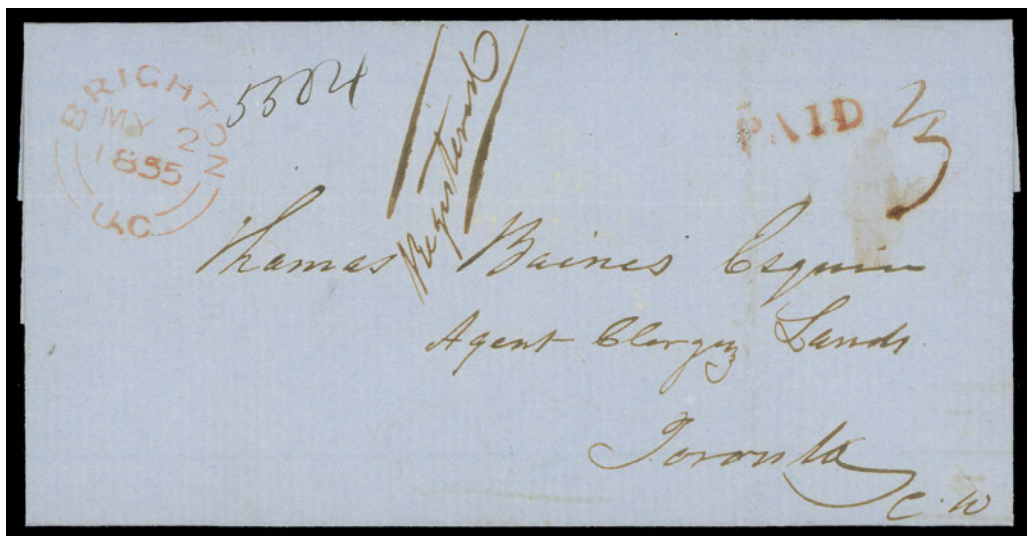 BRIGHTON
MY 2
1855
U.C
5504
Registered
PAID
3
Thomas Baines Esquire
Agent Clergy Lands
Toronto
C. W